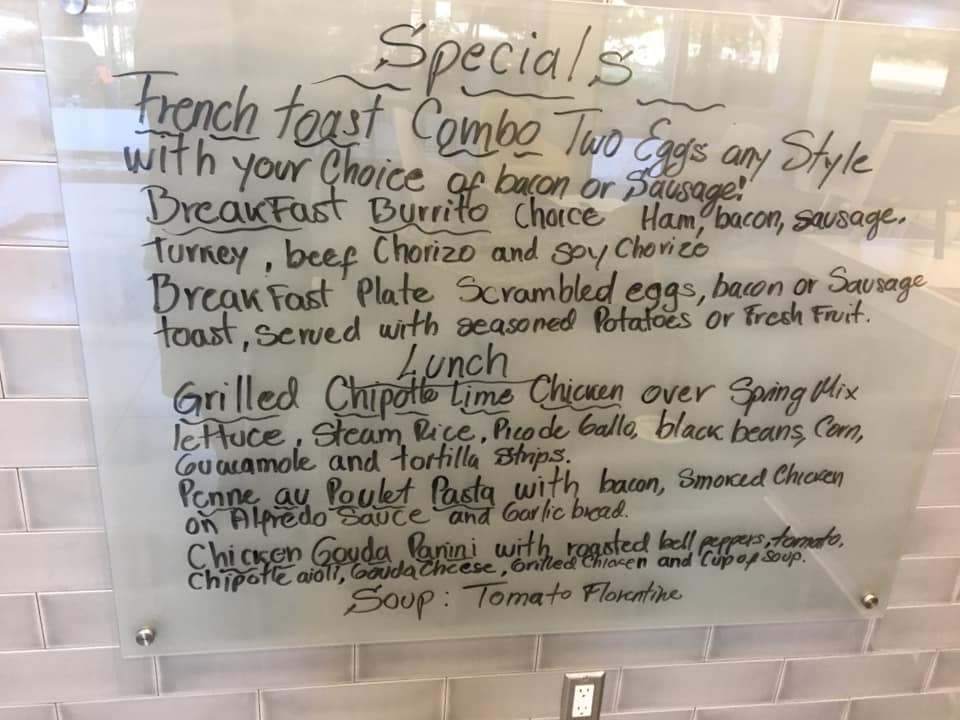 Specials
French toast Combo Two Eggs any Style
with your Choice of bacon or Sausage!
Breakfast Burrito Choice Ham, bacon, sausage.
Turkey, beef Chorizo and soy Chorizo
Breakfast Plate Scrambled eggs, bacon or Sausage
toast, served with seasoned Potatoes or Fresh Fruit.
Lunch
Grilled Chipotle Lime Chicken over Spring Mix
lettuce, Steam Rice, Pico de Gallo, black beans, Corn,
Guacamole and tortilla strips.
Penne au Poulet Pasta with bacon, Smoked Chicken
on Alfredo Sauce and Garlic bread.
Chicken Gouda Panini with roasted bell peppers, tomato,
Chipotle aioli, Gouda Cheese, Grilled Chicken and Cup of Soup.
Soup: Tomato Florentine